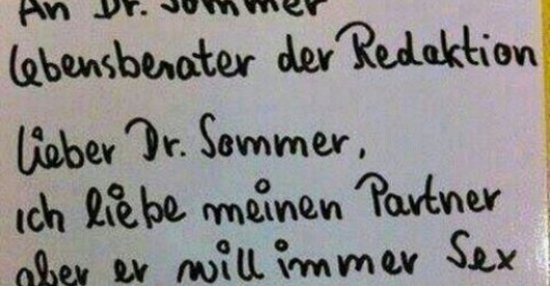 An Dr. Sommer
Lebensberater der Redaktion
Lieber Dr. Sommer,
ich liebe meinen Partner
aber er will immer Sex